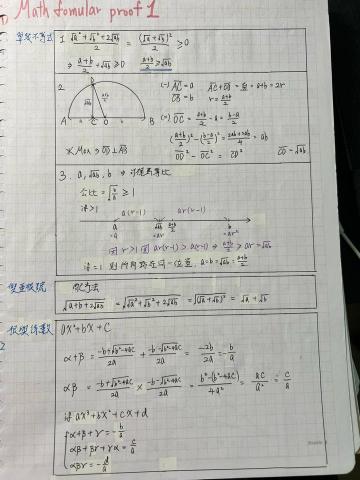 Math fomular proof 1
1. √a² + √b² + 2√ab / 2 = (√a + √b)² / 2 ≥ 0
⇒ a+b/2 + √ab ≥ 0 a+b/2 ≥ √ab
2.
(一) AC = a AC + CB = a+b = 2r
CB = b r = a+b/2
(二) OC = a+b/2 - a = b-a/2
(a+b/2)² - (b-a/2)² = 2ab+2ab/4 = ab
OD² - OC² = CD² CD = √ab
A C O B
※ Max ⇒ OD ⊥ AB
3. a, √ab, b ⇒
公比 = √b/a ≥ 1
a(r-1) ar(r-1)
a √ab a+b/2 b
=a =ar =ar²
因 r>1 因 ar(r-1) > a(r-1) ⇒ a+b/2 ≥ ar = √ab
a = b = √ab = a+b/2
配方法
√a+b+2√ab = √√a² + √b² + 2√ab = √(√a+√b)² = √a + √b
ax² + bx + c
α+β = -b+√b²-4ac/2a + -b-√b²-4ac/2a = -2b/2a = -b/a
αβ = -b+√b²-4ac/2a × -b-√b²-4ac/2a = b²-(b²-4ac)/4a² = ac/a² = c/a
if ax³ + bx² + cx + d
α+β+γ = -b/a
αβ + βγ + γα = c/a
αβγ = -d/a